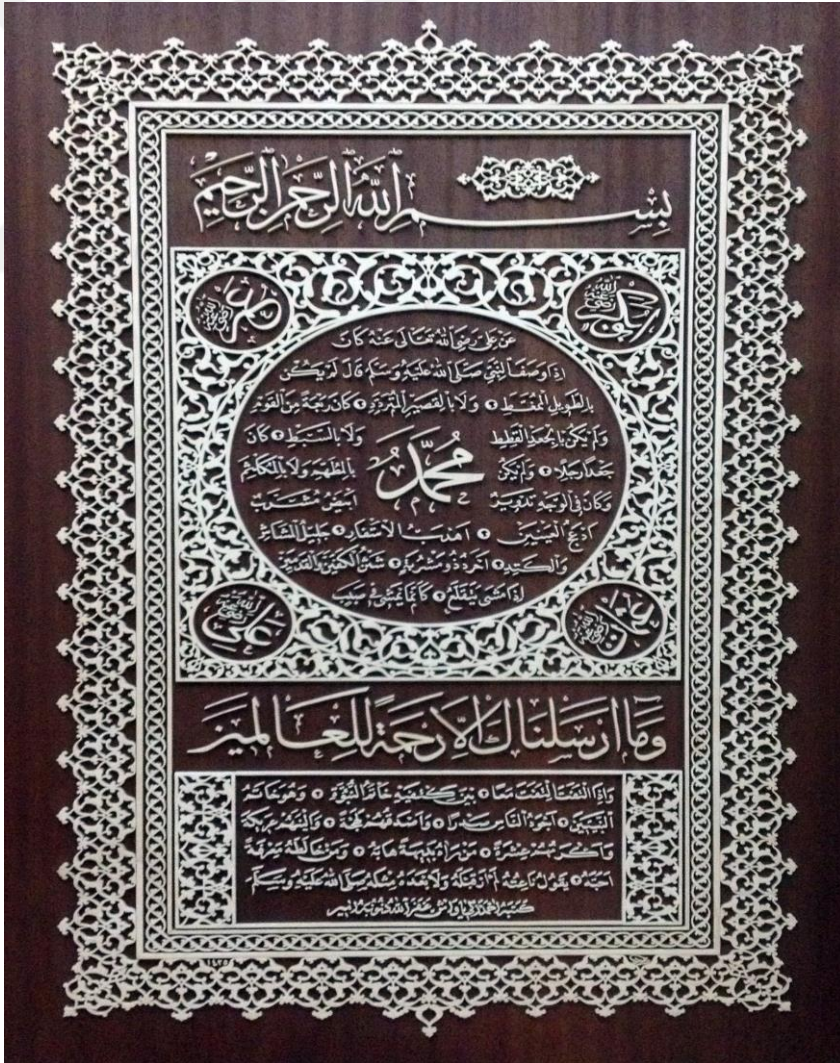 بِسْمِ اللهِ الرَّحْمٰنِ الرَّحِيمِ
عَنْ عَلِيٍّ رَضِيَ اللهُ تَعَالَى عَنْهُ كَانَ
إِذَا وَصَفَ النَّبِيَّ صَلَّى اللهُ عَلَيْهِ وَسَلَّمَ قَالَ لَمْ يَكُنْ
بِالطَّوِيلِ الْمُمَّغِطِ وَلَا بِالْقَصِيرِ الْمُتَرَدِّدِ كَانَ رَبْعَةً مِنَ الْقَوْمِ
وَلَمْ يَكُنْ بِالْجَعْدِ الْقَطِطِ وَلَا بِالسَّبِطِ كَانَ
جَعْدًا رَجِلًا وَلَمْ يَكُنْ بِالْمُطَهَّمِ وَلَا بِالْمُكَلْثَمِ
مُحَمَّدٌ
وَكَانَ فِي الْوَجْهِ تَدْوِيرٌ أَبْيَضُ مُشْرَبٌ
أَدْعَجُ الْعَيْنَيْنِ أَهْدَبُ الْأَشْفَارِ جَلِيلُ الْمُشَاشِ
وَالْكَتِدِ أَجْرَدُ ذُو مَسْرُبَةٍ شَثْنُ الْكَفَّيْنِ وَالْقَدَمَيْنِ
إِذَا مَشَى يَتَقَلَّعُ كَأَنَّمَا يَمْشِي فِي صَبَبٍ
عُمَرُ رَضِيَ اللهُ عَنْهُ
عَلِيٌّ رَضِيَ اللهُ عَنْهُ
عُثْمَانُ رَضِيَ اللهُ عَنْهُ
وَمَا أَرْسَلْنَاكَ إِلَّا رَحْمَةً لِلْعَالَمِينَ
وَإِذَا الْتَفَتَ الْتَفَتَ مَعًا بَيْنَ كَتِفَيْهِ خَاتَمُ النُّبُوَّةِ وَهُوَ خَاتَمُ
النَّبِيِّينَ أَجْوَدُ النَّاسِ صَدْرًا وَأَصْدَقُهُمْ لَهْجَةً وَأَلْيَنُهُمْ عَرِيكَةً
وَأَكْرَمُهُمْ عِشْرَةً مَنْ رَآهُ بَدِيهَةً هَابَهُ وَمَنْ خَالَطَهُ مَعْرِفَةً
أَحَبَّهُ يَقُولُ نَاعِتُهُ لَمْ أَرَ قَبْلَهُ وَلَا بَعْدَهُ مِثْلَهُ صَلَّى اللهُ عَلَيْهِ وَسَلَّمَ